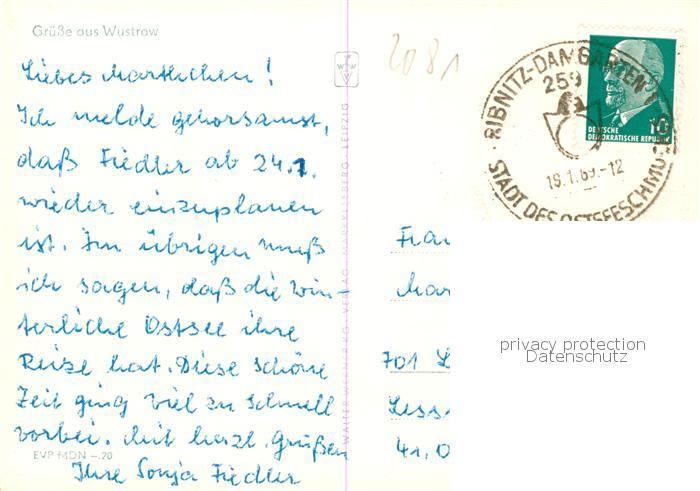 Grüße aus Wustrow
Liebes Marthchen!
Ich melde gehorsamst,
daß Fiedler ab 24.1.
wieder einzuplanen
ist. Im übrigen muß
ich sagen, daß die win-
terliche Ostsee ihre
Reize hat. Diese schöne
Zeit ging viel zu schnell
vorbei. Mit herzl. Grüßen
Ihre Sonja Fiedler
EVP MDN -.20
2081
RIBNITZ-DAMGARTEN 1
259
18.1.69.-12
STADT DES OSTSEESCHMU
10
DEUTSCHE
DEMOKRATISCHE REPUBLIK
Frau
Mar
701 L
Less
41, 0
privacy protection
Datenschutz